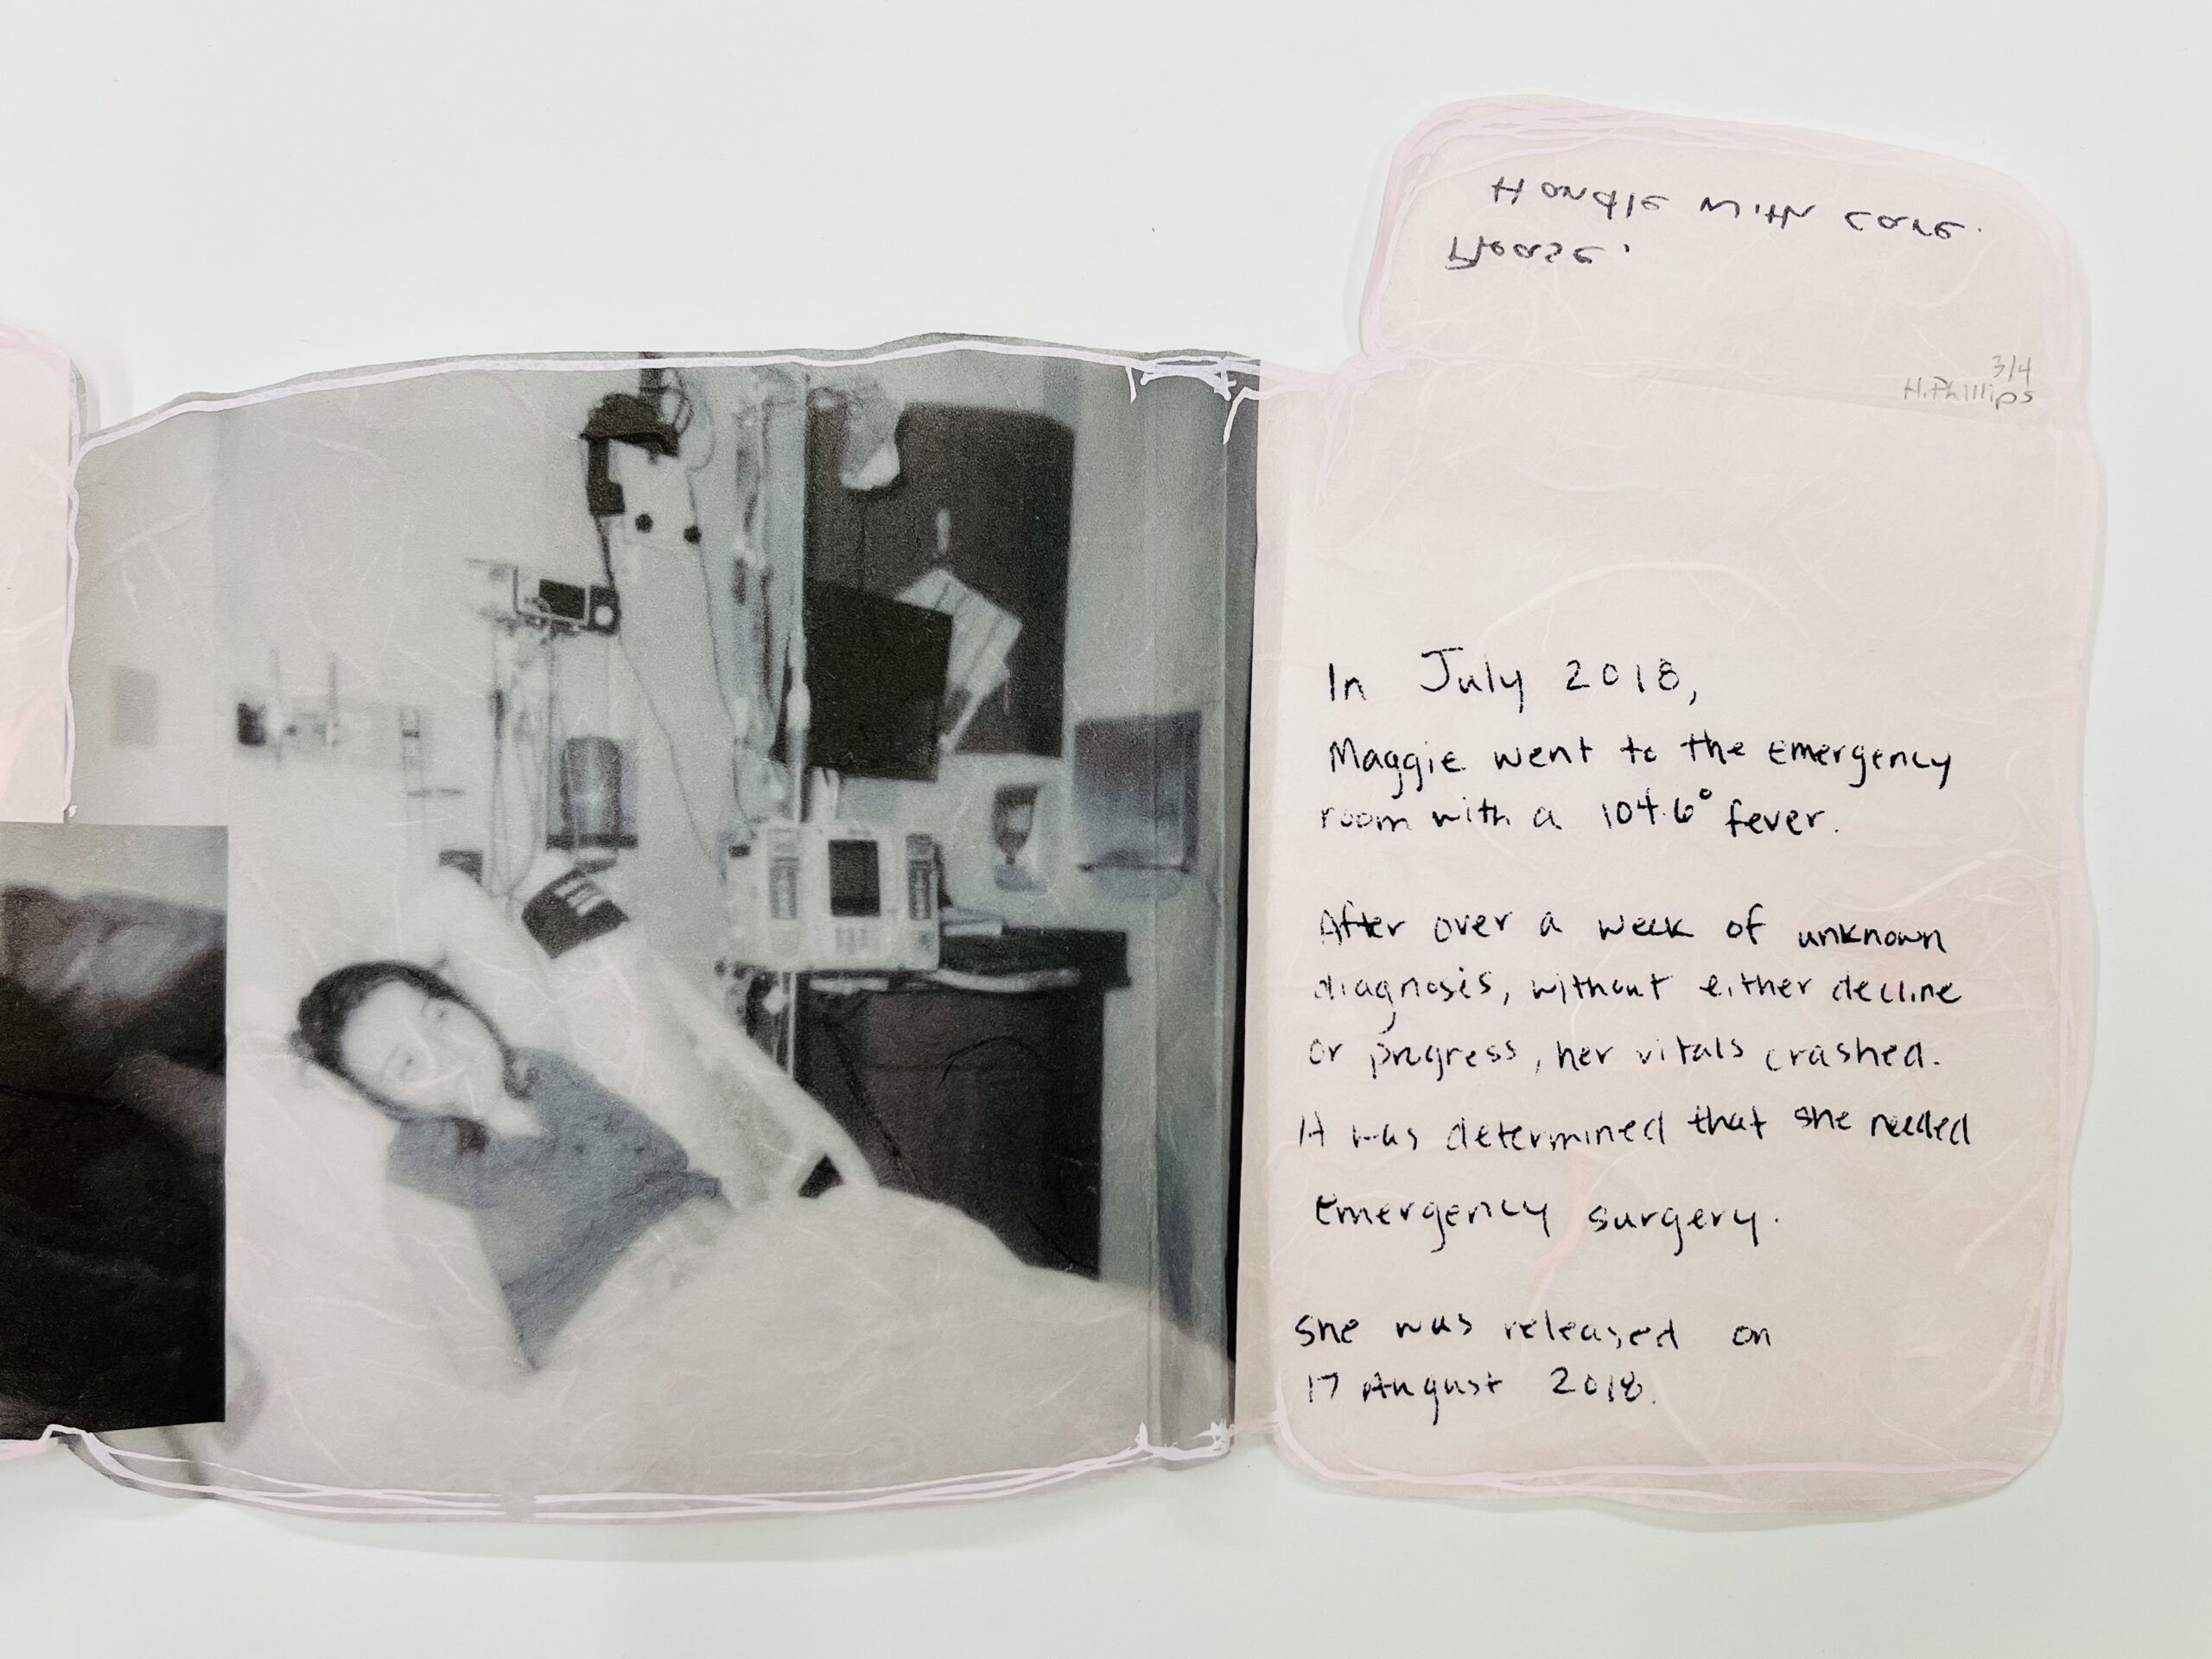 Handle with care.
Please.
3/4
H.Phillips
In July 2018,
Maggie went to the emergency
room with a 104.6° fever.
After over a week of unknown
diagnosis, without either decline
or progress, her vitals crashed.
It was determined that she needed
emergency surgery.
She was released on
17 August 2018.